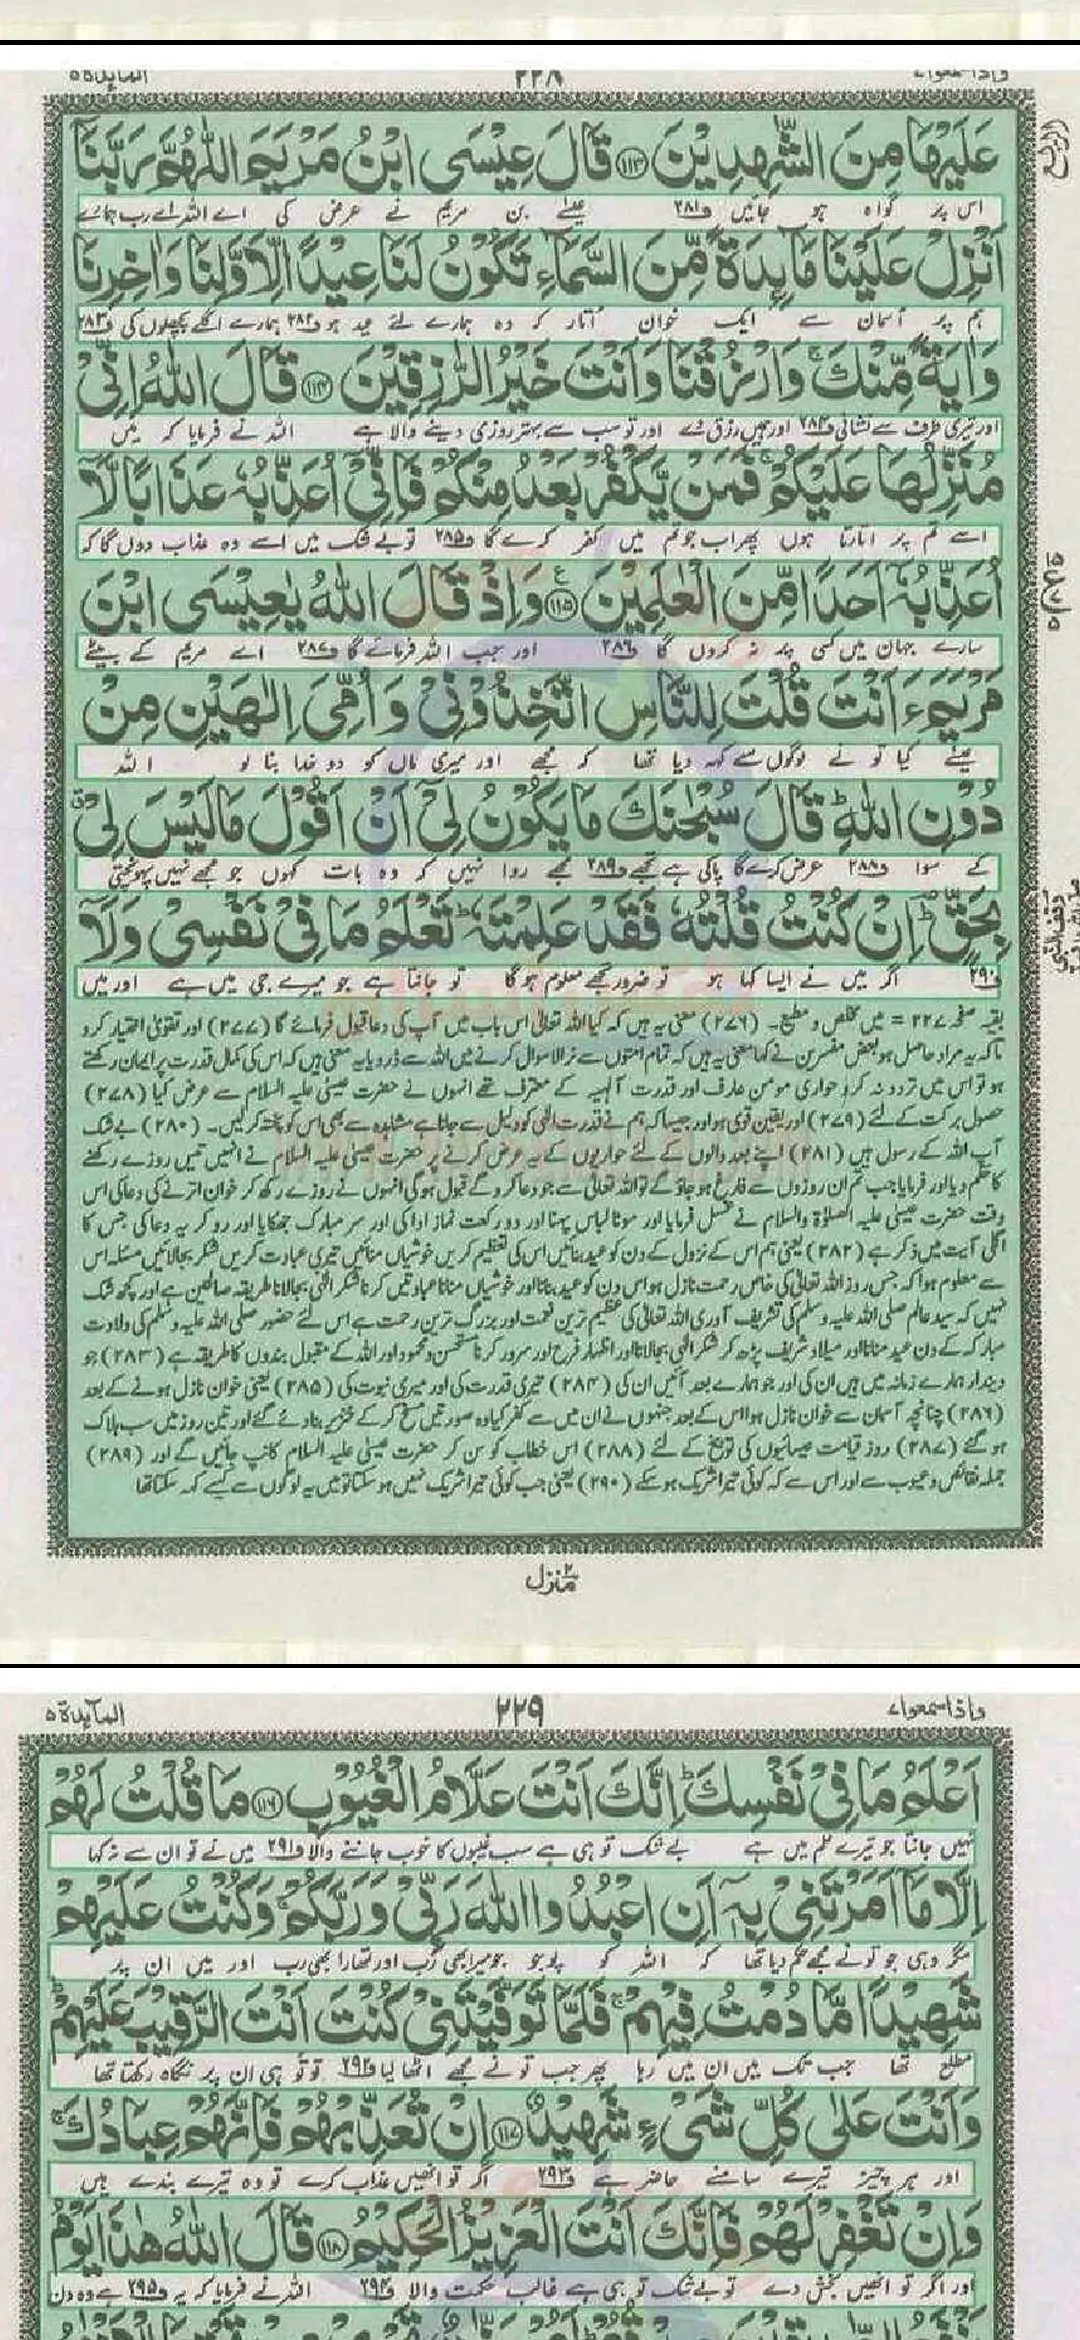 المآىدة ۵
۲۲۸
واذاسمعوا ۷
عَلَيْهَا مِنَ الشّٰهِدِيْنَ ﴿۱۱۳﴾ قَالَ عِيْسَى ابْنُ مَرْيَمَ اللّٰهُمَّ رَبَّنَاۤ
اس پر گواہ ہو جائیں ف۲۸۱ عیسٰے بن مریم نے عرض کی اے اللہ اے رب ہمارے
اَنْزِلْ عَلَيْنَا مَآىِٕدَةً مِّنَ السَّمَآءِ تَكُوْنُ لَنَا عِيْدًا لِّاَوَّلِنَا وَاٰخِرِنَا
ہم پر آسمان سے ایک خوان اُتار کہ وہ ہمارے لئے عید ہو ف۲۸۲ ہمارے اگلے پچھلوں کی ف۲۸۳
وَاٰيَةً مِّنْكَ ۚ وَارْزُقْنَا وَاَنْتَ خَيْرُ الرّٰزِقِيْنَ ﴿۱۱۴﴾ قَالَ اللّٰهُ اِنِّيْ
اور تیری طرف سے نشانی ف۲۸۴ اور ہمیں رزق دے اور تو سب سے بہتر روزی دینے والا ہے اللہ نے فرمایا کہ میں
مُنَزِّلُهَا عَلَيْكُمْ ۚ فَمَنْ يَّكْفُرْ بَعْدُ مِنْكُمْ فَاِنِّيْۤ اُعَذِّبُهٗ عَذَابًا لَّاۤ
اسے تم پر اتارتا ہوں پھر اب جو تم میں کفر کرے گا ف۲۸۵ تو بے شک میں اسے وہ عذاب دوں گا کہ
اُعَذِّبُهٗۤ اَحَدًا مِّنَ الْعٰلَمِيْنَ ﴿۱۱۵﴾ وَاِذْ قَالَ اللّٰهُ يٰعِيْسَى ابْنَ
سارے جہان میں کسی پر نہ کروں گا ف۲۸۶ اور جب اللہ فرمائے گا ف۲۸۷ اے مریم کے بیٹے
مَرْيَمَ ءَاَنْتَ قُلْتَ لِلنَّاسِ اتَّخِذُوْنِيْ وَاُمِّيَ اِلٰهَيْنِ مِنْ
عیسٰے کیا تو نے لوگوں سے کہہ دیا تھا کہ مجھے اور میری ماں کو دو خدا بنا لو اللہ
دُوْنِ اللّٰهِ ؕ قَالَ سُبْحٰنَكَ مَا يَكُوْنُ لِيْۤ اَنْ اَقُوْلَ مَا لَيْسَ لِيْ
کے سوا ف۲۸۸ عرض کرے گا پاکی ہے تجھے ف۲۸۹ مجھے روا نہیں کہ وہ بات کہوں جو مجھے نہیں پہونچتی
بِحَقٍّ ؕ اِنْ كُنْتُ قُلْتُهٗ فَقَدْ عَلِمْتَهٗ ؕ تَعْلَمُ مَا فِيْ نَفْسِيْ وَلَاۤ
ف۲۹۰ اگر میں نے ایسا کہا ہو تو ضرور تجھے معلوم ہوگا تو جانتا ہے جو میرے جی میں ہے اور میں
بقیہ صفحہ ۲۲۷ = میں مخلص و مطیع۔ (۲۷۶) معنی یہ ہیں کہ کیا اللہ تعالیٰ اس باب میں آپ کی دعا قبول فرمائے گا (۲۷۷) اور تقویٰ اختیار کرو
تاکہ یہ مراد حاصل ہو بعض مفسرین نے کہا معنی یہ ہیں کہ تمام امتوں سے نرالا سوال کرنے میں اللہ سے ڈرو یا یہ معنی ہیں کہ اس کی کمال قدرت پر ایمان رکھتے
ہو تو اس میں تردد نہ کرو حواری مومن عارف اور قدرت الٰہیہ کے معترف تھے انہوں نے حضرت عیسیٰ علیہ السلام سے عرض کیا (۲۷۸)
حصول برکت کے لئے (۲۷۹) اور یقین قوی ہو اور جیسا کہ ہم نے قدرت الٰہی کو دلیل سے جانا ہے مشاہدہ سے بھی اس کو پختہ کر لیں۔ (۲۸۰) بے شک
آپ اللہ کے رسول ہیں (۲۸۱) اپنے بعد والوں کے لئے حواریوں کے یہ عرض کرنے پر حضرت عیسیٰ علیہ السلام نے انھیں تیس روزے رکھنے
کا حکم دیا اور فرمایا جب تم ان روزوں سے فارغ ہو جاؤ گے تو اللہ تعالیٰ سے جو دعا کرو گے قبول ہوگی انہوں نے روزے رکھ کر خوان اترنے کی دعا کی اس
وقت حضرت عیسیٰ علیہ الصلوٰۃ والسلام نے غسل فرمایا اور موٹا لباس پہنا اور دو رکعت نماز ادا کی اور سر مبارک جھکایا اور رو کر یہ دعا کی جس کا
اگلی آیت میں ذکر ہے (۲۸۲) یعنی ہم اس کے نزول کے دن کو عید بنائیں اس کی تعظیم کریں خوشیاں منائیں تیری عبادت کریں شکر بجا لائیں مسئلہ اس
سے معلوم ہوا کہ جس روز اللہ تعالیٰ کی خاص رحمت نازل ہو اس دن کو عید بنانا اور خوشیاں منانا عبادتیں کرنا شکر الٰہی بجالانا طریقہ صالحین ہے اور کچھ شک
نہیں کہ سید عالم صلی اللہ علیہ وسلم کی تشریف آوری اللہ تعالیٰ کی عظیم ترین نعمت اور بزرگ ترین رحمت ہے اس لئے حضور صلی اللہ علیہ وسلم کی ولادت
مبارکہ کے دن عید منانا اور میلاد شریف پڑھ کر شکر الٰہی بجالانا اور اظہار فرح اور سرور کرنا مستحسن و محمود اور اللہ کے مقبول بندوں کا طریقہ ہے (۲۸۳) جو
دیندار ہمارے زمانہ میں ہیں ان کی اور جو ہمارے بعد آئیں ان کی (۲۸۴) تیری قدرت کی اور میری نبوت کی (۲۸۵) یعنی خوان نازل ہونے کے بعد
(۲۸۶) چنانچہ آسمان سے خوان نازل ہوا اس کے بعد جنہوں نے ان میں سے کفر کیا وہ صورتیں مسخ کر کے خنزیر بنا دئے گئے اور تین روز میں سب ہلاک
ہو گئے (۲۸۷) روز قیامت عیسائیوں کی توبیخ کے لئے (۲۸۸) اس خطاب کو سن کر حضرت عیسیٰ علیہ السلام کانپ جائیں گے اور (۲۸۹)
جملہ نقائص و عیوب سے اور اس سے کہ کوئی تیرا شریک ہو سکے (۲۹۰) یعنی جب کوئی تیرا شریک نہیں ہو سکتا تو میں یہ لوگوں سے کیسے کہہ سکتا تھا
منزل ۲
المآىدة ۵
۲۲۹
واذاسمعوا ۷
اَعْلَمُ مَا فِيْ نَفْسِكَ ؕ اِنَّكَ اَنْتَ عَلَّامُ الْغُيُوْبِ ﴿۱۱۶﴾ مَا قُلْتُ لَهُمْ
نہیں جانتا جو تیرے علم میں ہے بے شک تو ہی ہے سب غیبوں کا خوب جاننے والا ف۲۹۱ میں نے تو ان سے نہ کہا
اِلَّا مَاۤ اَمَرْتَنِيْ بِهٖۤ اَنِ اعْبُدُوا اللّٰهَ رَبِّيْ وَرَبَّكُمْ ۚ وَكُنْتُ عَلَيْهِمْ
مگر وہی جو تو نے مجھے حکم دیا تھا کہ اللہ کو پوجو جو میرا بھی رب اور تمھارا بھی رب اور میں ان پر
شَهِيْدًا مَّا دُمْتُ فِيْهِمْ ۚ فَلَمَّا تَوَفَّيْتَنِيْ كُنْتَ اَنْتَ الرَّقِيْبَ عَلَيْهِمْ ؕ
مطلع تھا جب تک میں ان میں رہا پھر جب تو نے مجھے اٹھا لیا ف۲۹۲ تو تو ہی ان پر نگاہ رکھتا تھا
وَاَنْتَ عَلٰى كُلِّ شَيْءٍ شَهِيْدٌ ﴿۱۱۷﴾ اِنْ تُعَذِّبْهُمْ فَاِنَّهُمْ عِبَادُكَ ۚ
اور ہر چیز تیرے سامنے حاضر ہے ف۲۹۳ اگر تو انھیں عذاب کرے تو وہ تیرے بندے ہیں
وَاِنْ تَغْفِرْ لَهُمْ فَاِنَّكَ اَنْتَ الْعَزِيْزُ الْحَكِيْمُ ﴿۱۱۸﴾ قَالَ اللّٰهُ هٰذَا يَوْمُ
اور اگر تو انھیں بخش دے تو بے شک تو ہی ہے غالب حکمت والا ف۲۹۴ اللہ نے فرمایا کہ یہ ف۲۹۵ ہے وہ دن